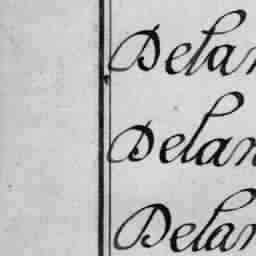 Delan
Delan
Delan